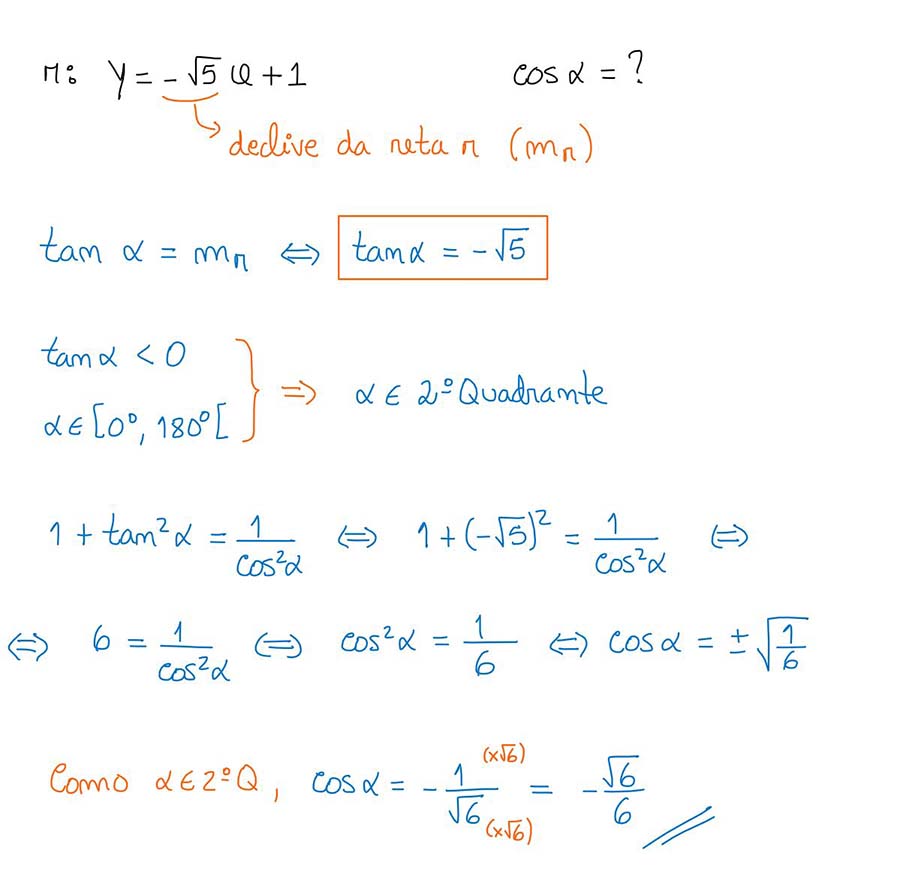 r: y = -√5 x + 1 cos α = ?
declive da reta r (mᵣ)
tan α = mᵣ ⇔ tan α = -√5
tan α < 0
α ∈ [0º, 180º[ } ⇒ α ∈ 2º Quadrante
1 + tan²α = 1/cos²α ⇔ 1 + (-√5)² = 1/cos²α ⇔
⇔ 6 = 1/cos²α ⇔ cos²α = 1/6 ⇔ cos α = ±√(1/6)
Como α ∈ 2º Q, cos α = - 1/√6 (×√6) (×√6) = - √6/6